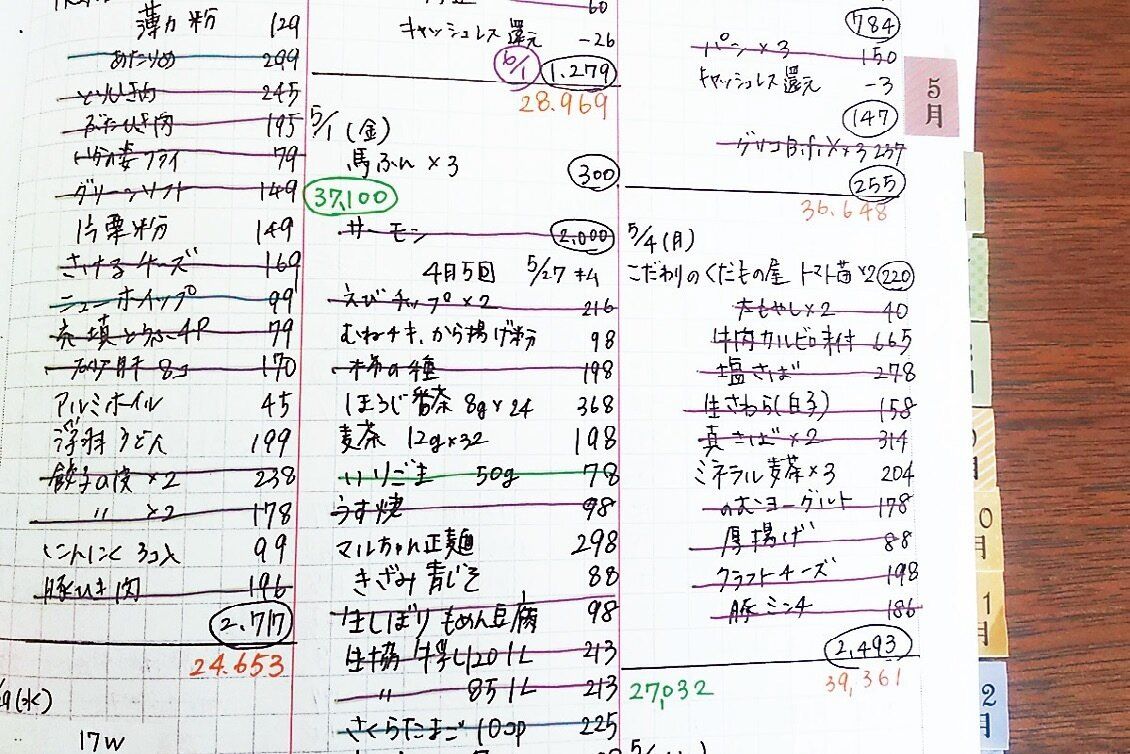 薄力粉 129
あたりめ 299
とりひき肉 245
ぶたひき肉 195
79
グリーンソフト 149
片栗粉 149
さけるチーズ 169
ニューホイップ 99
充填とうふ4P 79
170
アルミホイル 45
浮羽うどん 199
餃子の皮×2 238
〃 ×2 178
にんにく 3コ入 99
豚ひき肉 196
2,717
24.653
(水)
17W
60
キャッシュレス還元 -26
6/1 1,279
28.969
5/1(金)
馬ふん×3 300
37,100
サーモン 2,000
4月5回 5/27 キム
えびチップ×2 216
むねチキ、から揚げ粉 98
柿の種 198
ほうじ番茶 8g×24 368
麦茶 12g×32 198
いりごま 50g 78
うす焼 98
マルちゃん正麺 298
きざみ青じそ 88
生しぼりもめん豆腐 98
生協 牛乳120 1L 213
〃 85 1L 213
さくらたまご 10コP 225
784
パン×3 150
キャッシュレス還元 -3
147
255
36.648
5/4(月)
こだわりのくだもの屋 トマト苗×2 220
大もやし×2 40
牛肉カルビ味付 665
塩さば 278
生さわら(白子) 158
真さば×2 314
ミネラル麦茶×3 204
のむヨーグルト 178
厚揚げ 88
クラフトチーズ 198
豚ミンチ 186
2,493
27,032 39,361
5月